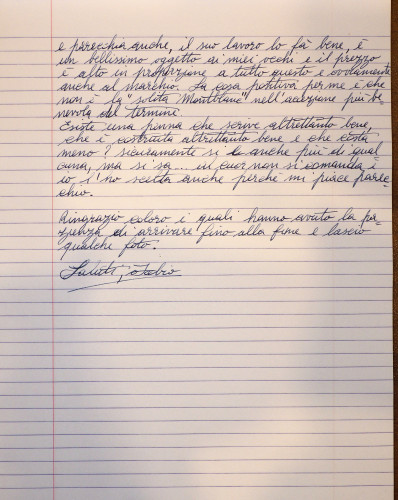 e parecchia anche, il suo lavoro lo fà bene, è
un bellissimo oggetto ai miei occhi e il prezzo
è alto in proporzione a tutto questo e ovviamente
anche al marchio. La cosa positiva per me è che
non è la "solita Montblanc" nell'accezione più be-
nevola del termine.
Esiste una penna che scrive altrettanto bene,
che è costruita altrettanto bene e che costi
meno? sicuramente si e anche più di qual
cuna, ma si sa... al cuor non si comanda e
io l'ho scelta anche perchè mi piace parec-
chio.
Ringrazio coloro i quali hanno avuto la pa-
zienza di arrivare fino alla fine e lascio
qualche foto.
Saluti, Fabio